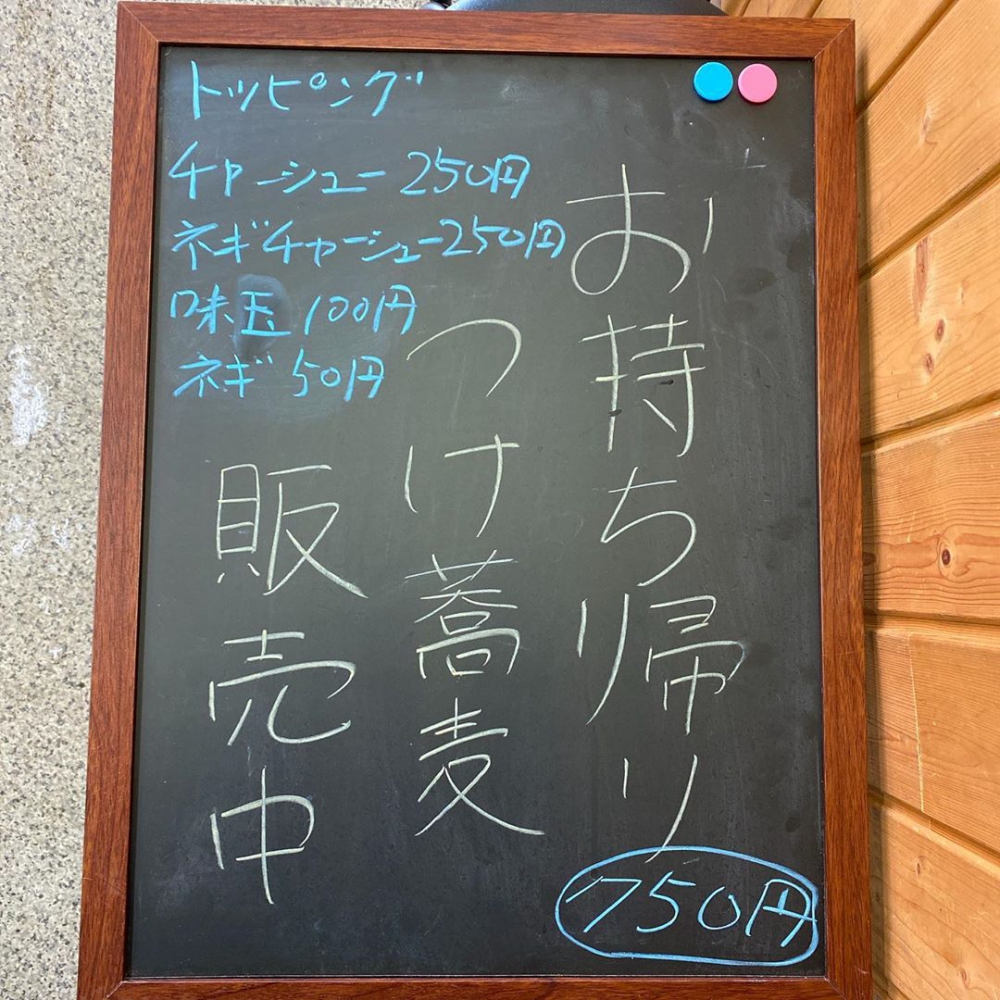 トッピング
チャーシュー 250円
ネギチャーシュー250円
味玉 100円
ネギ 50円
お持ち帰り
つけ蕎麦
販売中
750円